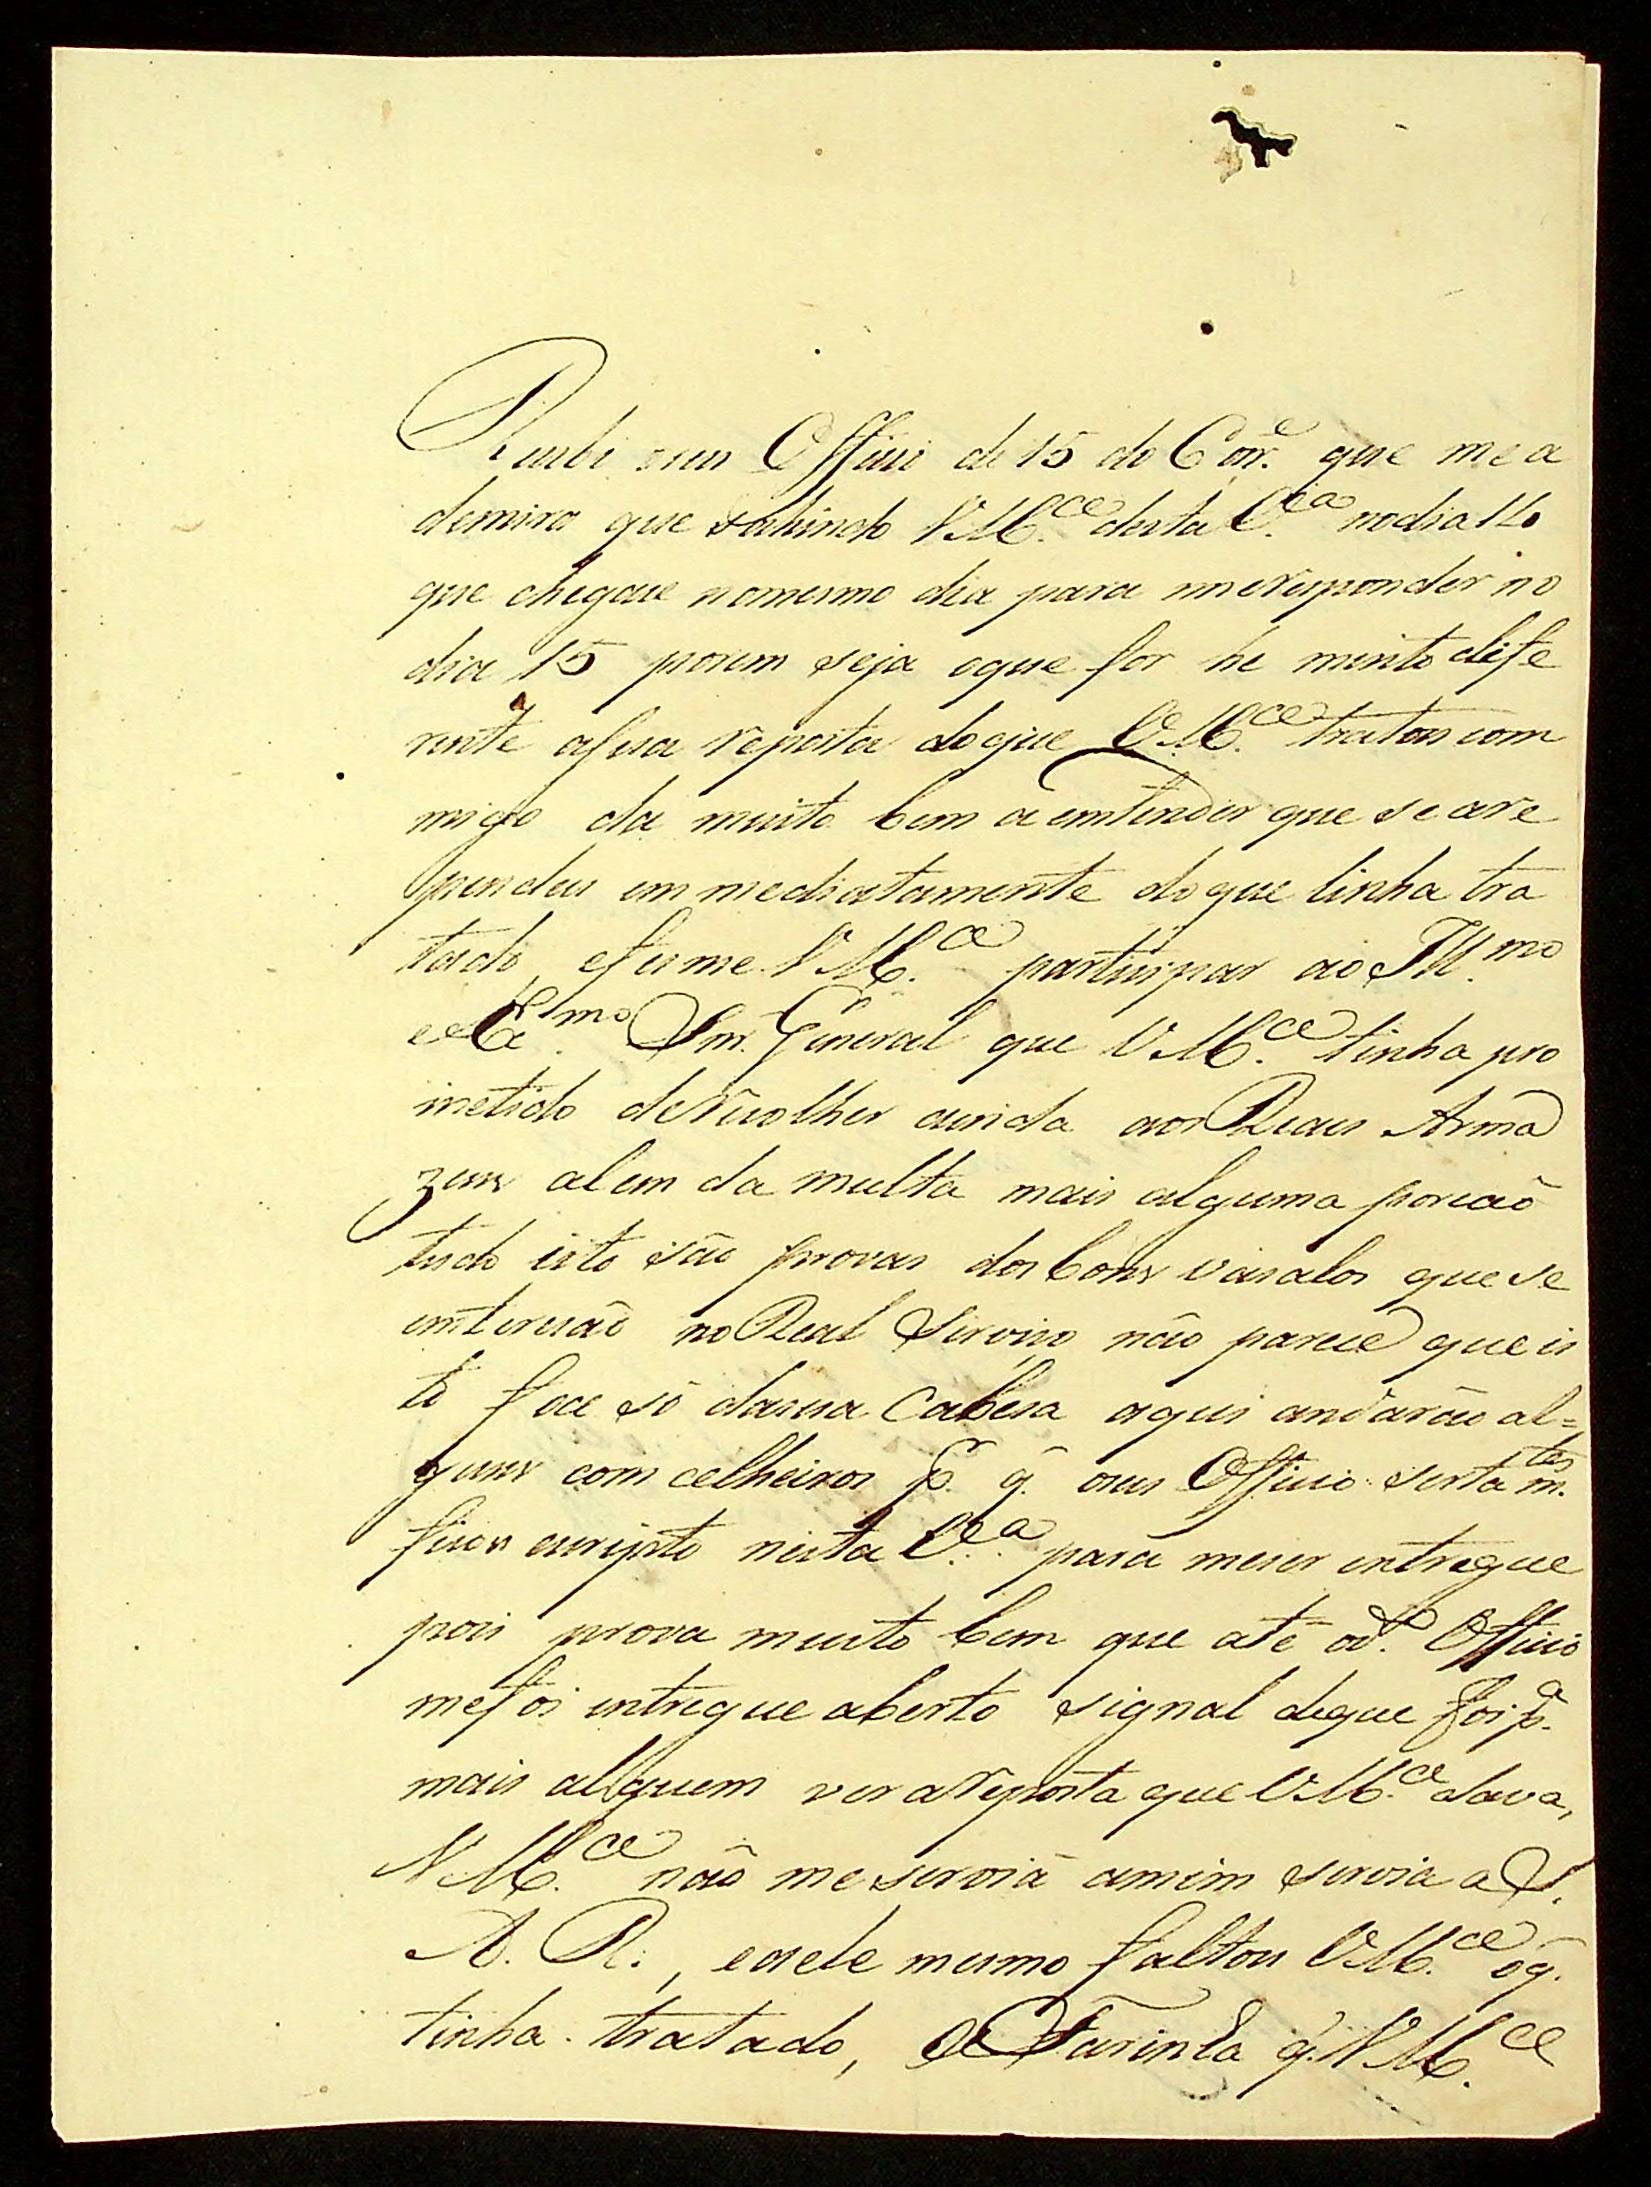 Recebi seu Officio de 15 do Corr.e que me a
demira que sahindo VM.ce desta V.a no dia 16
que chegace nomesmo dia para meresponder no
dia 15 porem seja oque for he muito dife
rente asua reposta doque VM.ce tratou com
migo da muito bem a emtender que se are
pendeu emmediatamente doque tinha tra
tado, efesme VM.ce participar ao Ill.mo
e Ex.mo Snr. General que VM.ce tinha pro
metido deRecolher ainda aos Reais Arma
zens alem da multa mais alguma porcaõ
tudo isto são provas dos bons vasalos que se
interesaõ no Real Servico não parece que is
to foce só dasua Cabesa aqui andarão al=
guns comcelheiros p. q. oseu Officio sertam.tes
ficou escripto nesta V.a para meser entregue
pois prova muito bem que até od.o Officio
mefoi entregue aberto signal deque foi p.a
mais alguem ver areposta que VM.ce dava,
VM.ce não me servia amim servia a S.
A. R., eaele mesmo faltou VM.ce oq.
tinha tratado, a Farinha q. VM.ce